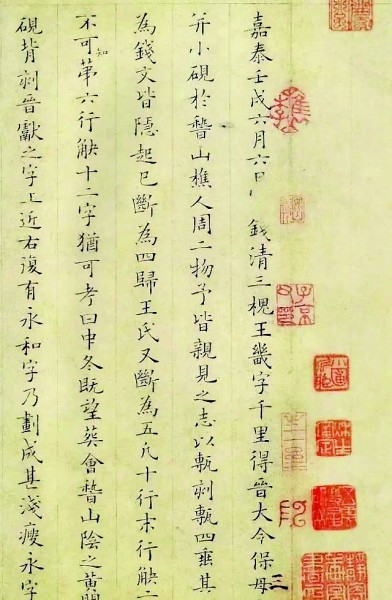 三
嘉泰壬戌六月六日錢清三槐王畿字千里得晉大令保母
并小硯於稽山樵人周二物予皆親見之志以甎刻甎四垂其
為錢文皆隱起已斷為四歸王氏又斷為五凡十行末行缺二
不可知第六行缺十二字猶可考曰中冬既望葬會稽山陰之黃
硯背刻晉獻之字上近右復有永和字乃劃成甚淺瘦永字